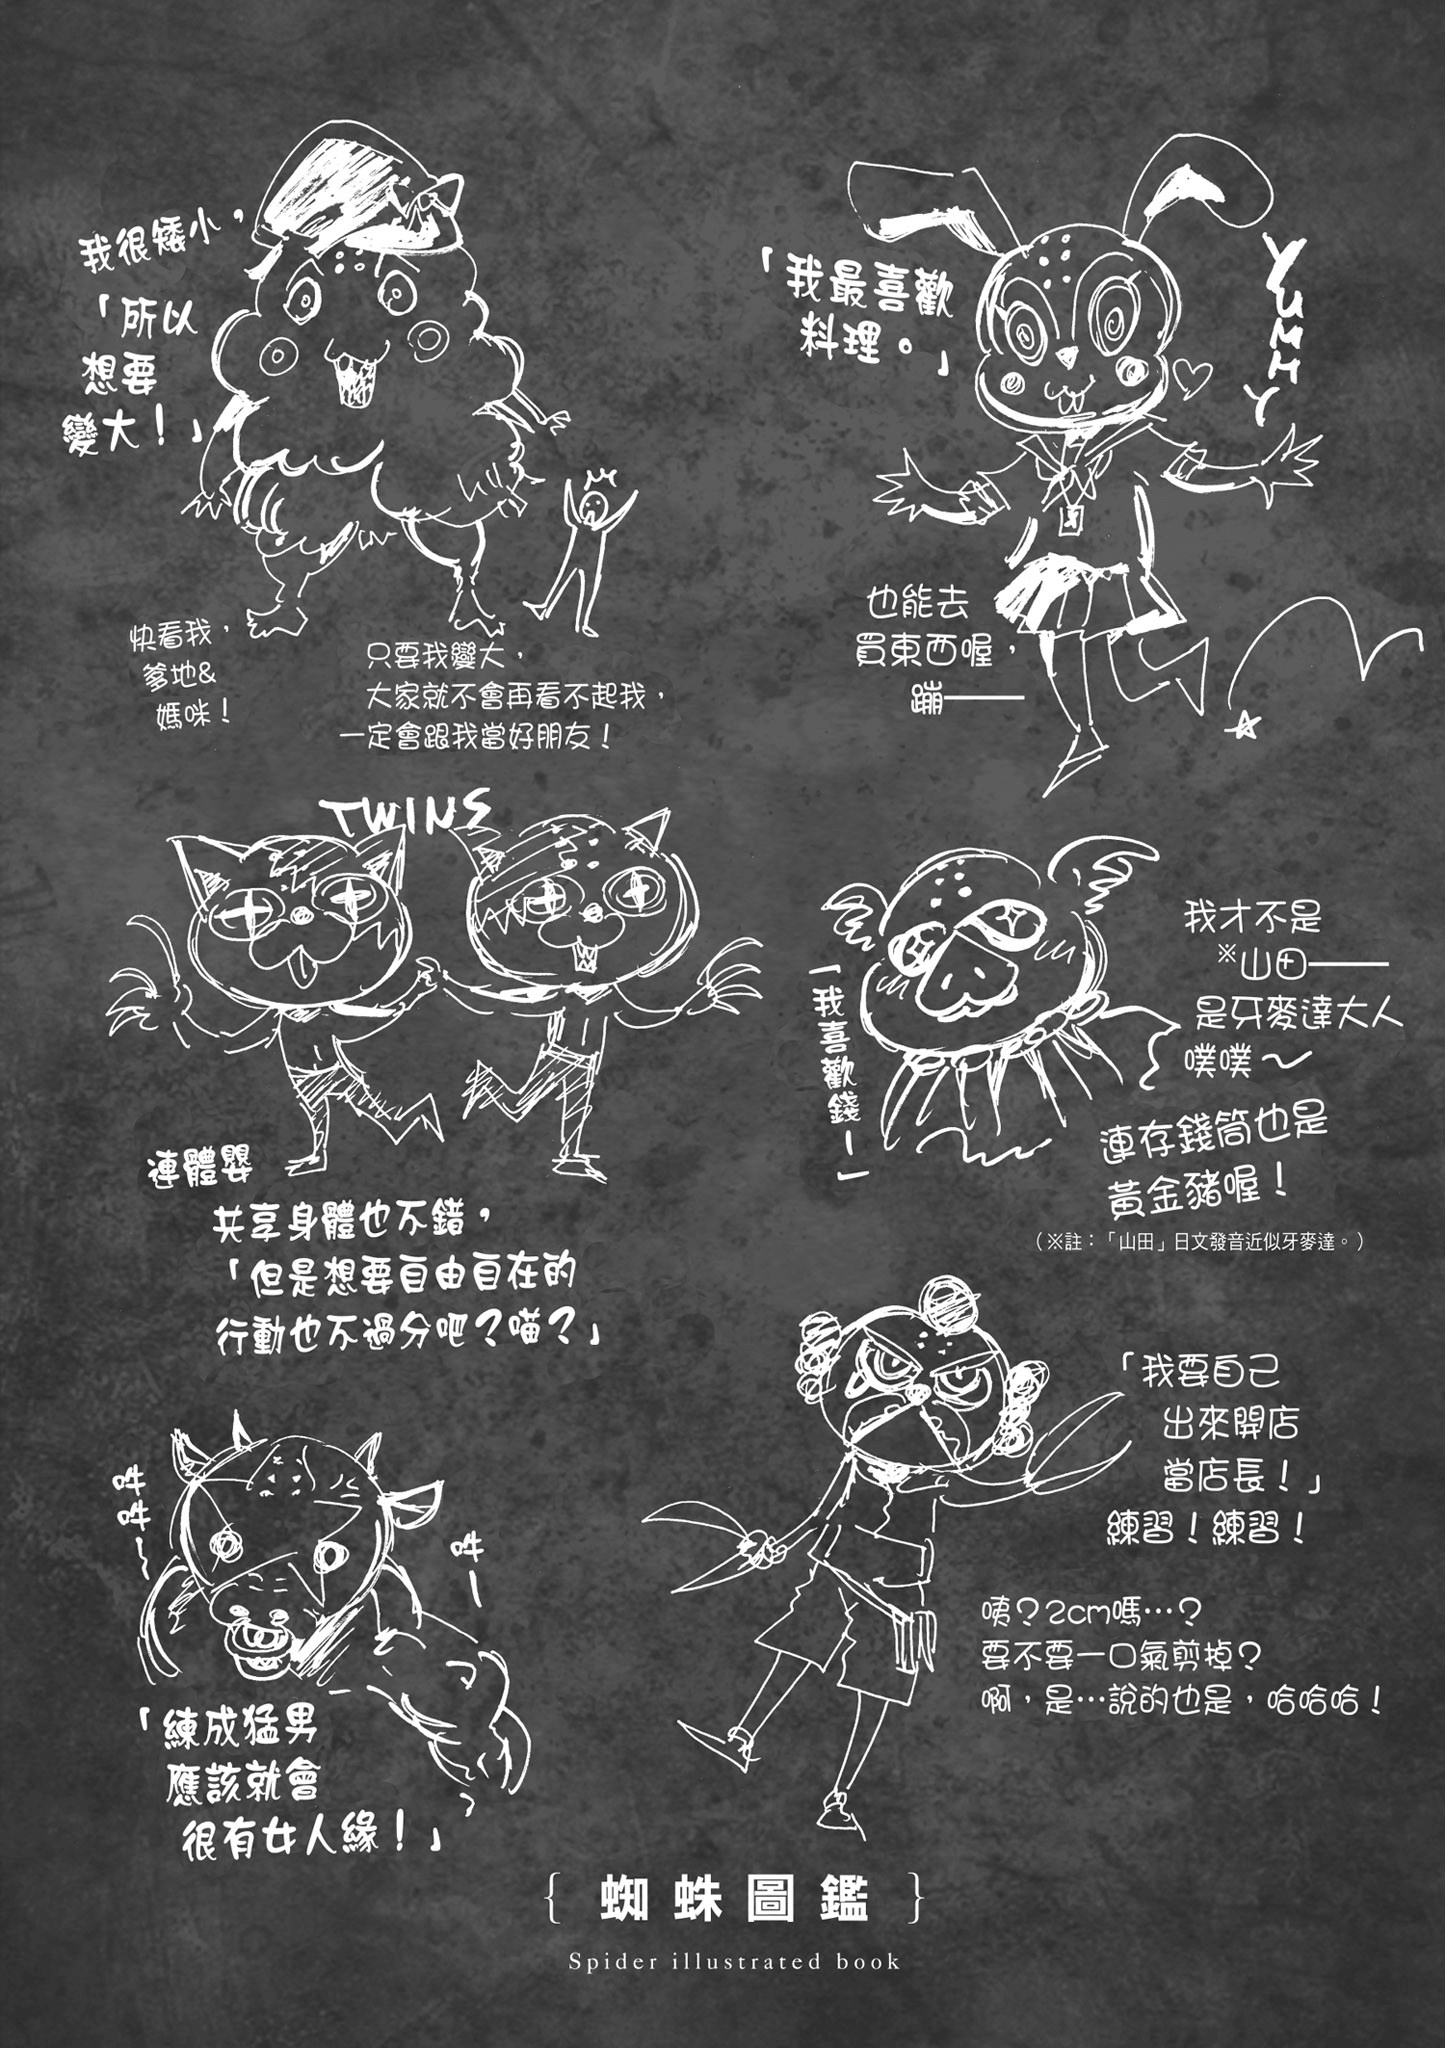 我很矮小，
「所以
想要
變大！」
快看我，
爹地&
媽咪！
只要我變大，
大家就不會再看不起我，
一定會跟我當好朋友！
「我最喜歡
料理。」
YUMMY
也能去
買東西喔，
蹦——
TWINS
連體嬰
共享身體也不錯，
「但是想要自由自在的
行動也不過分吧？喵？」
「我喜歡錢！」
我才不是
※山田——
是牙麥達大人
噗噗～
連存錢筒也是
黃金豬喔！
（※註：「山田」日文發音近似牙麥達。）
吽
吽～
吽—
「練成猛男
應該就會
很有女人緣！」
「我要自己
出來開店
當店長！」
練習！練習！
咦？2cm嗎…？
要不要一口氣剪掉？
啊，是…說的也是，哈哈哈！
{ 蜘蛛圖鑑 }
Spider illustrated book